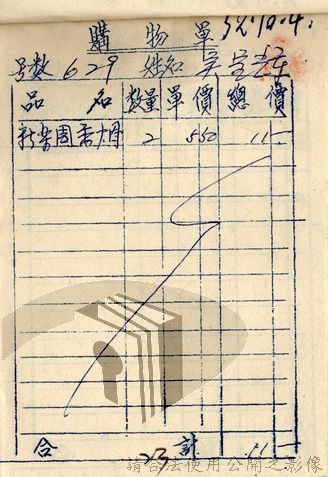 購物單 52.10.4.
号数 629 姓名 吳
品名 数量 單價 總價
新樂園香烟 2 550 11-
合計 11-
23
請合法使用公開之影像